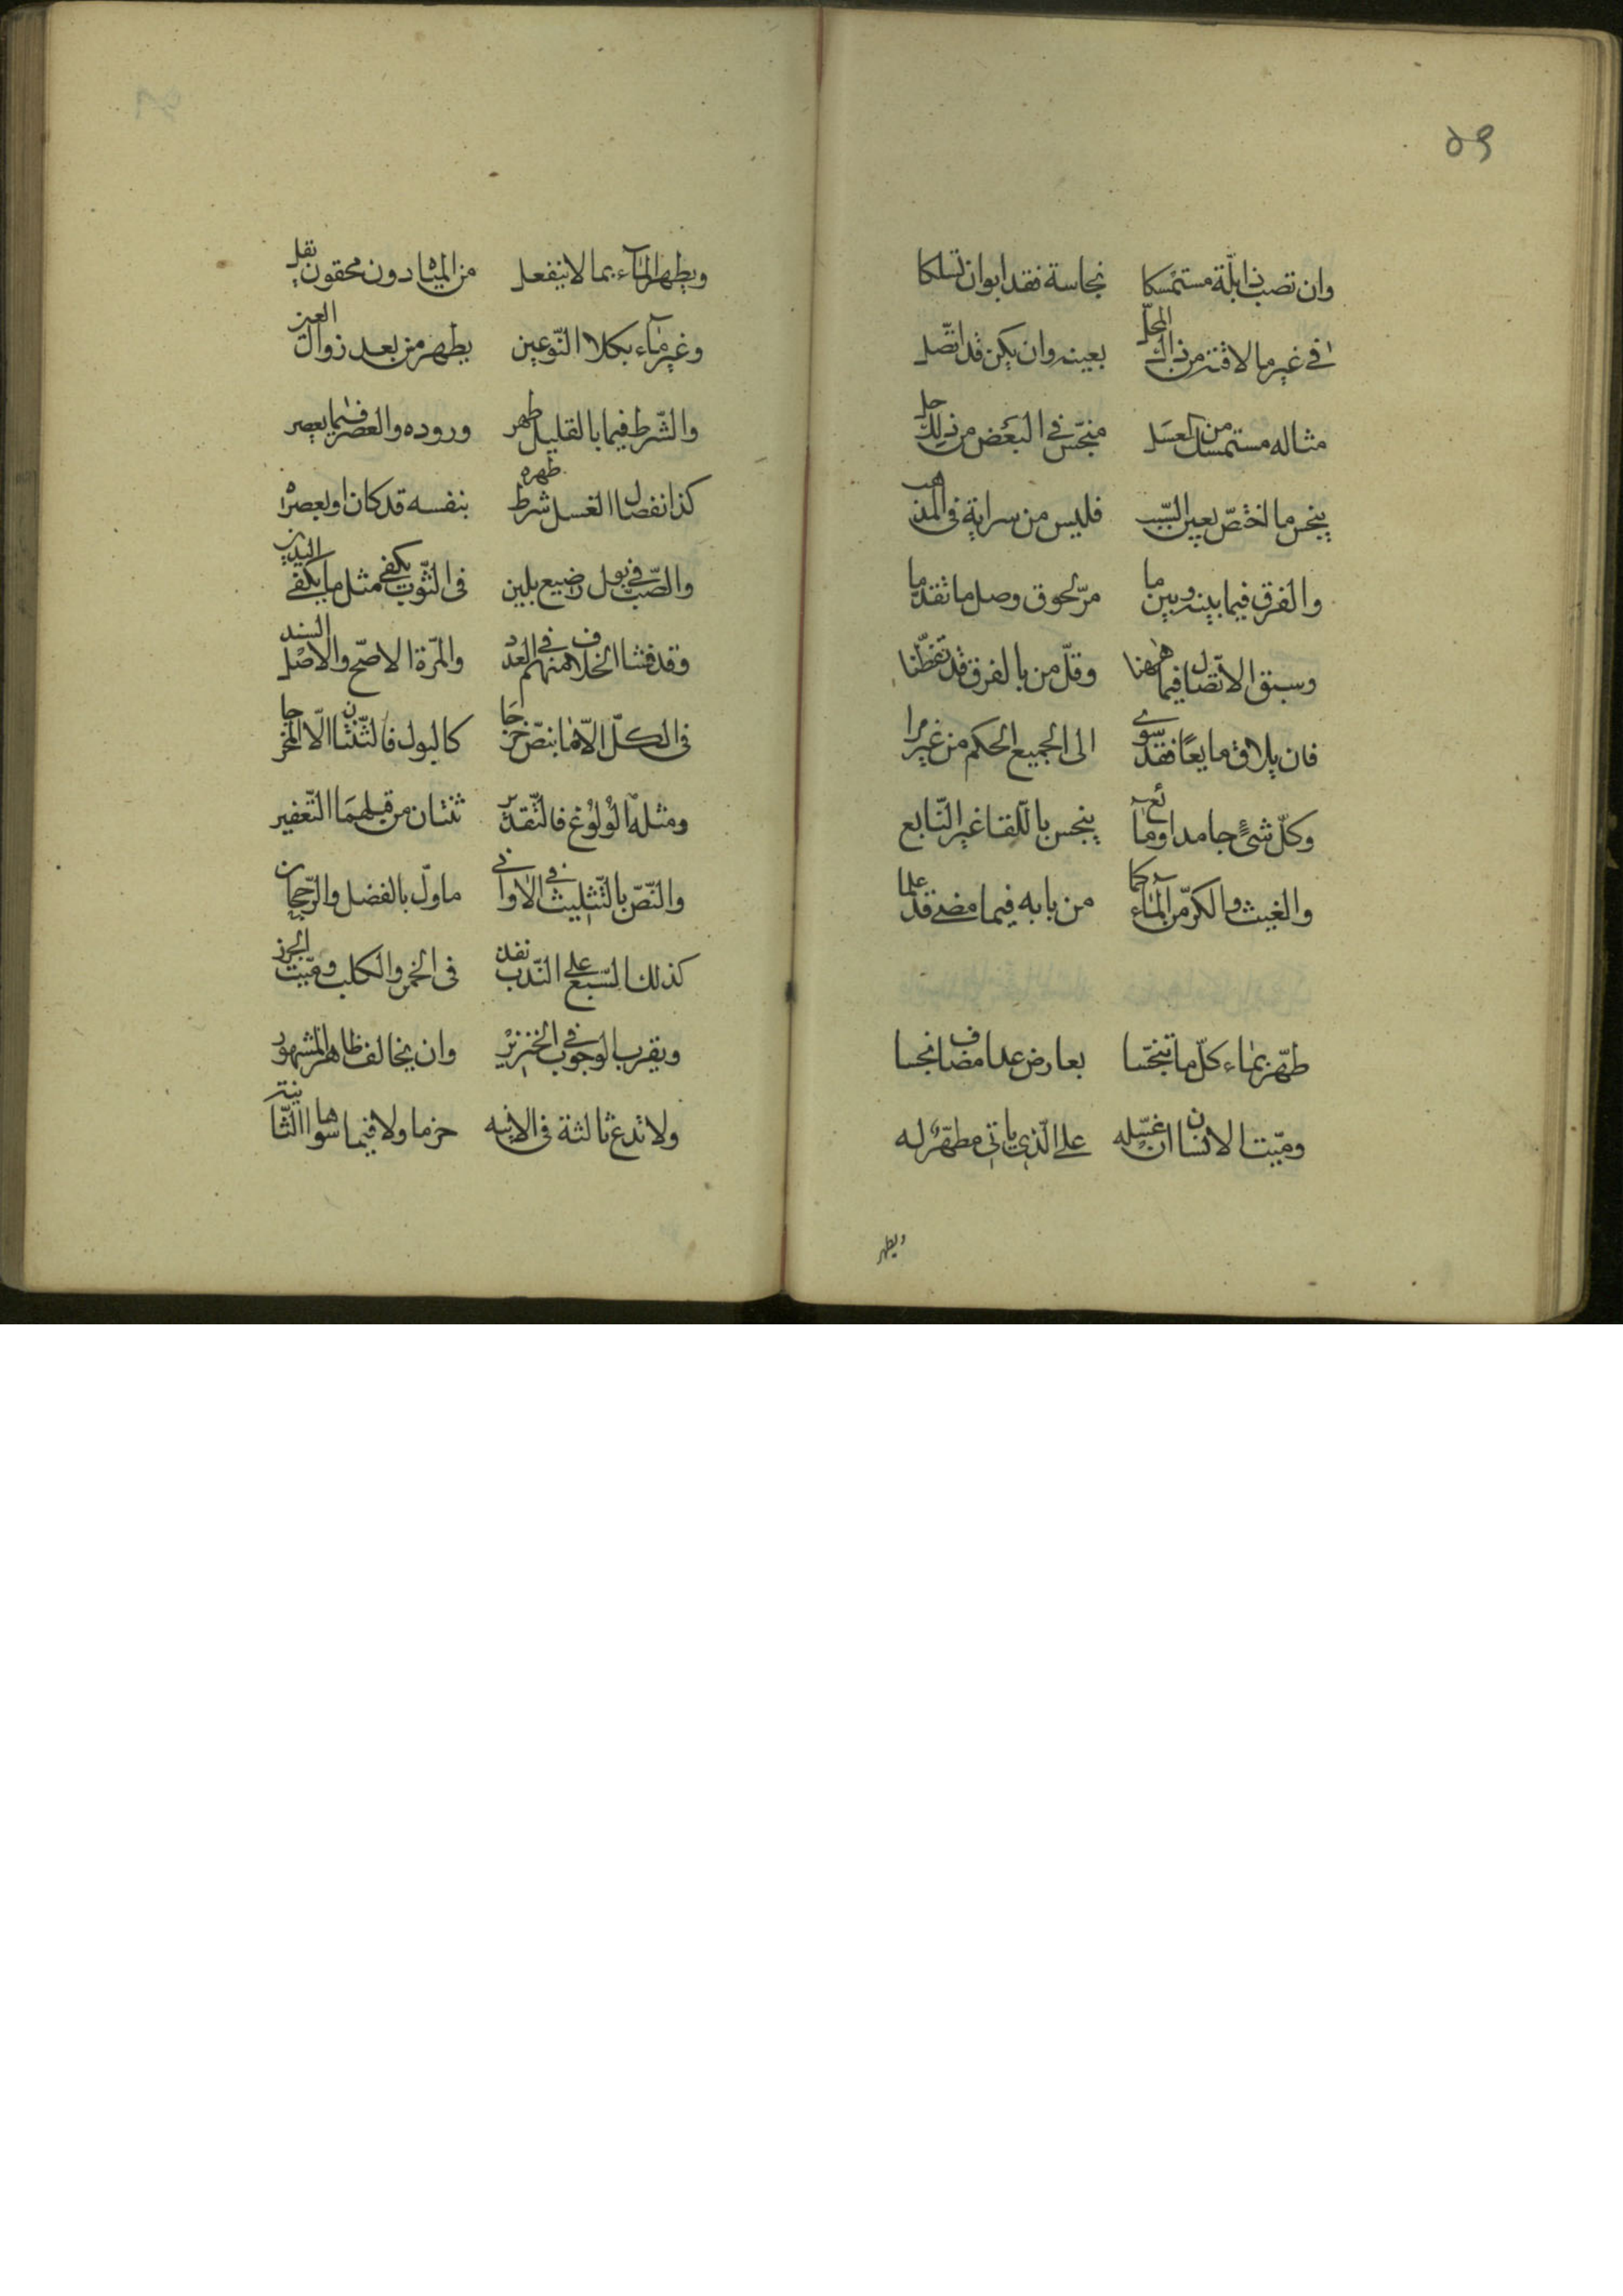 ٥٩
وان تصب ذا بلّة مستمسكا نجاسة فقد ابوا ان تسلكا
في غير ما لاقته من ذاك المحلّ بعينه وان يكن قد اتّصل
مثاله مستمسك من العسل منجّس في البعض من ذلك حل
ينجس ما اختصّ بعين السّبب فليس من سراية في المذهب
والفرق فيما بينه وبين ما مرّ لحوق وصل ما تقدّما
وسبق الاتّصال فيما ههنا وقلّ من بالفرق قد تفطّنا
فان يلاق مايعًا فقد سوى الى الجميع الحكم من غير مرا
وكلّ شئٍ جامد او مائع ينجس باللّقا غير النّابع
والغيث والكرّ من المآء كما من بابه فيما مضى قد علما
طهّر بماء كلّ ما تنجّسا بعارض عدا مضاف نجسا
وميّت الانسان ان غسّله على الّذي ياتي مطهّر له
ويطهر
ويطهر المآء بما لا ينفعل من المياه دون محقون يقل
وغير مآء بكلا النّوعين يطهر من بعد زوال العين
والشّرط فيما بالقليل طهر وروده والعصر فيما يعصر
كذا انفصال الغسل شرط طهره بنفسه قد كان او بعصره
والصّبّ في بول رضيع بلبن في الثّوب يكفي مثل ما يكفي البدن
وقد فشا الخلاف منهم في العدد والمرّة الاصحّ والاصل السند
في الكلّ الّا ما بنصّ خرجا كالبول فالثّنتان الّا المخرجا
ومثله الولوغ فالتّقدير ثنتان من قبلهما التّعفير
والنّصّ بالتّثليث في الاواني ماوّل بالفضل والرّجحان
كذلك السّبع على النّدب نفذ في الخمر والكلب وميّت الجرذ
ويقرب الوجوب في الخنزير وان يخالف ظاهر المشهور
ولا تدع ثالثة في الانيه حزما ولا فيما سواها الثّانيه